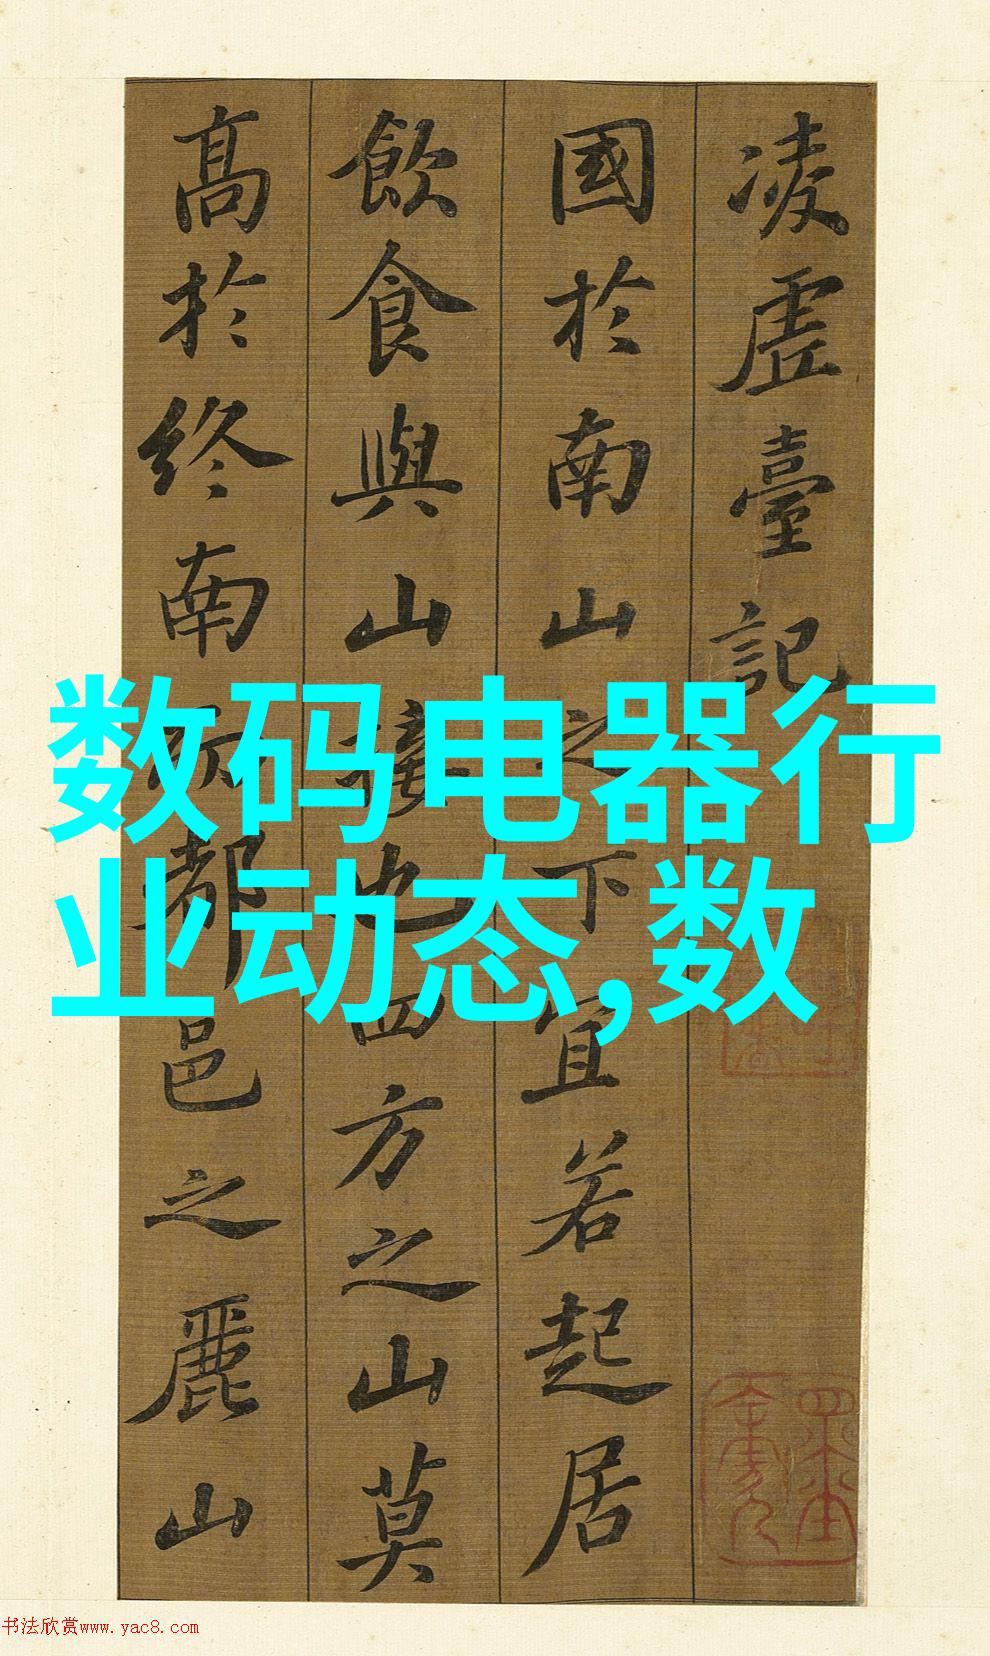 凌虛臺記
國於南山之下宜若起居
飲食與山接也四方之山莫
高於終南而都邑之麗山
数码电器行
业动态,数
书法欣赏www.yac8.com